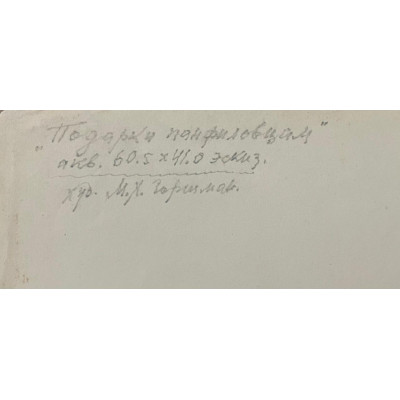 "Подарки панфиловцам"
акв. 60.5 х 41.0 эскиз.
худ. М.Х. Горшман.